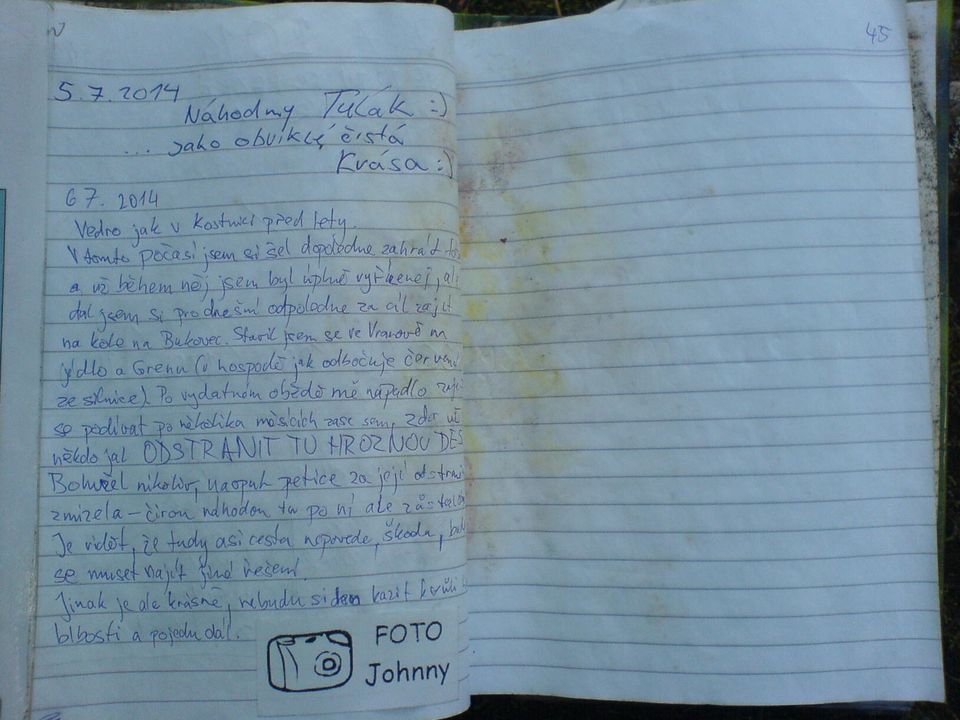 45
5.7.2014
Náhodny Tulák :)
... jako obvikle, čistá
Krása :)
6 7. 2014
Vedro jak v Kostnici před lety.
V tomto počasí jsem si šel dopoledne zahrát
a už během něj jsem byl úplně vyřízenej, ale
dal jsem si pro dnešní odpoledne za cíl zajít
na kole na Bukovec. Stavil jsem se ve Vranově na
jídlo a Grenu (v hospodě jak odbočuje červená
ze silnice). Po vydatnom obědě mě napadlo
se podívat po několika měsících zase sem, zda už
někdo jal ODSTRANIT TU HROZNOU DES
Bohužel nikoliv, naopak petice za její
zmizela - čirou náhodou tu po ní ale
Je vidět, že tudy asi cesta nepovede, škoda,
se muset najít jiné řešení.
Jinak je ale krásně, nebudu si den kazit kvůli
blbosti a pojedu dál.
FOTO
Johnny